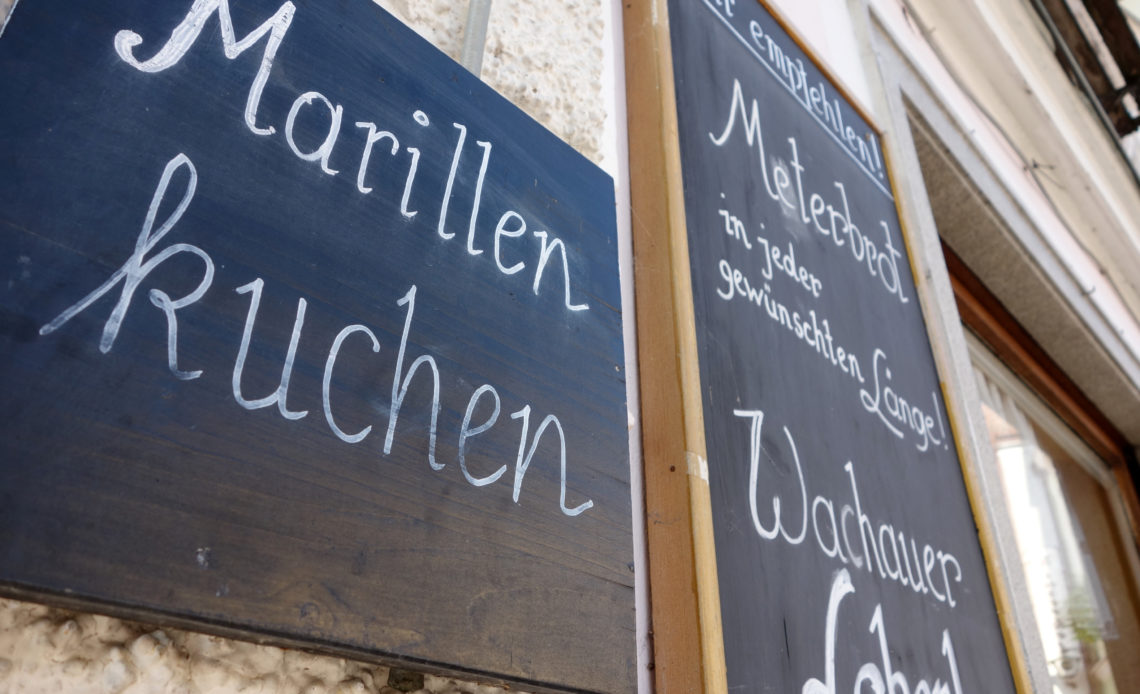 Marillen
kuchen
empfehlen!
Meterbrot
in jeder
gewünschten Länge!
Wachauer